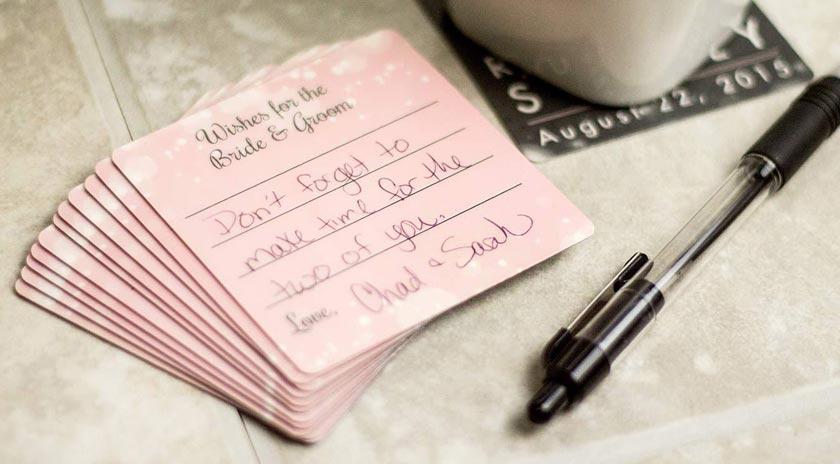 Wishes for the
Bride & Groom
Don't forget to
make time for the
two of you.
Love, Chad & Sarah
August 22, 2015